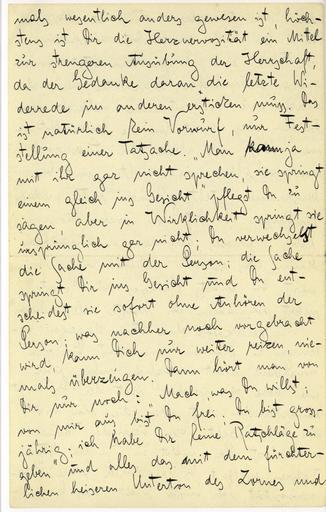 mals wesentlich anders gewesen ist, höch-
stens ist Dir die Herznervosität ein Mittel
zur strengeren Ausübung der Herrschaft,
da der Gedanke daran die letzte Wi-
derrede im anderen ersticken muss. Das
ist natürlich kein Vorwurf, nur Fest-
stellung einer Tatsache. „Man kann ja
mit ihr gar nicht sprechen, sie springt
einem gleich ins Gesicht" pflegst Du zu
sagen, aber in Wirklichkeit springt sie
ursprünglich gar nicht; Du verwechselst
die Sache mit der Person; die Sache
springt Dir ins Gesicht und Du ent-
scheidest sie sofort ohne Anhören der
Person; was nachher noch vorgebracht
wird, kann Dich nur weiter reizen, nie-
mals überzeugen. Dann hört man von
Dir nur noch: „Mach, was Du willst;
von mir aus bist Du frei. Du bist gross-
jährig; ich habe Dir keine Ratschläge zu
geben" und alles das mit dem fürchter-
lichen heiseren Unterton des Zornes und